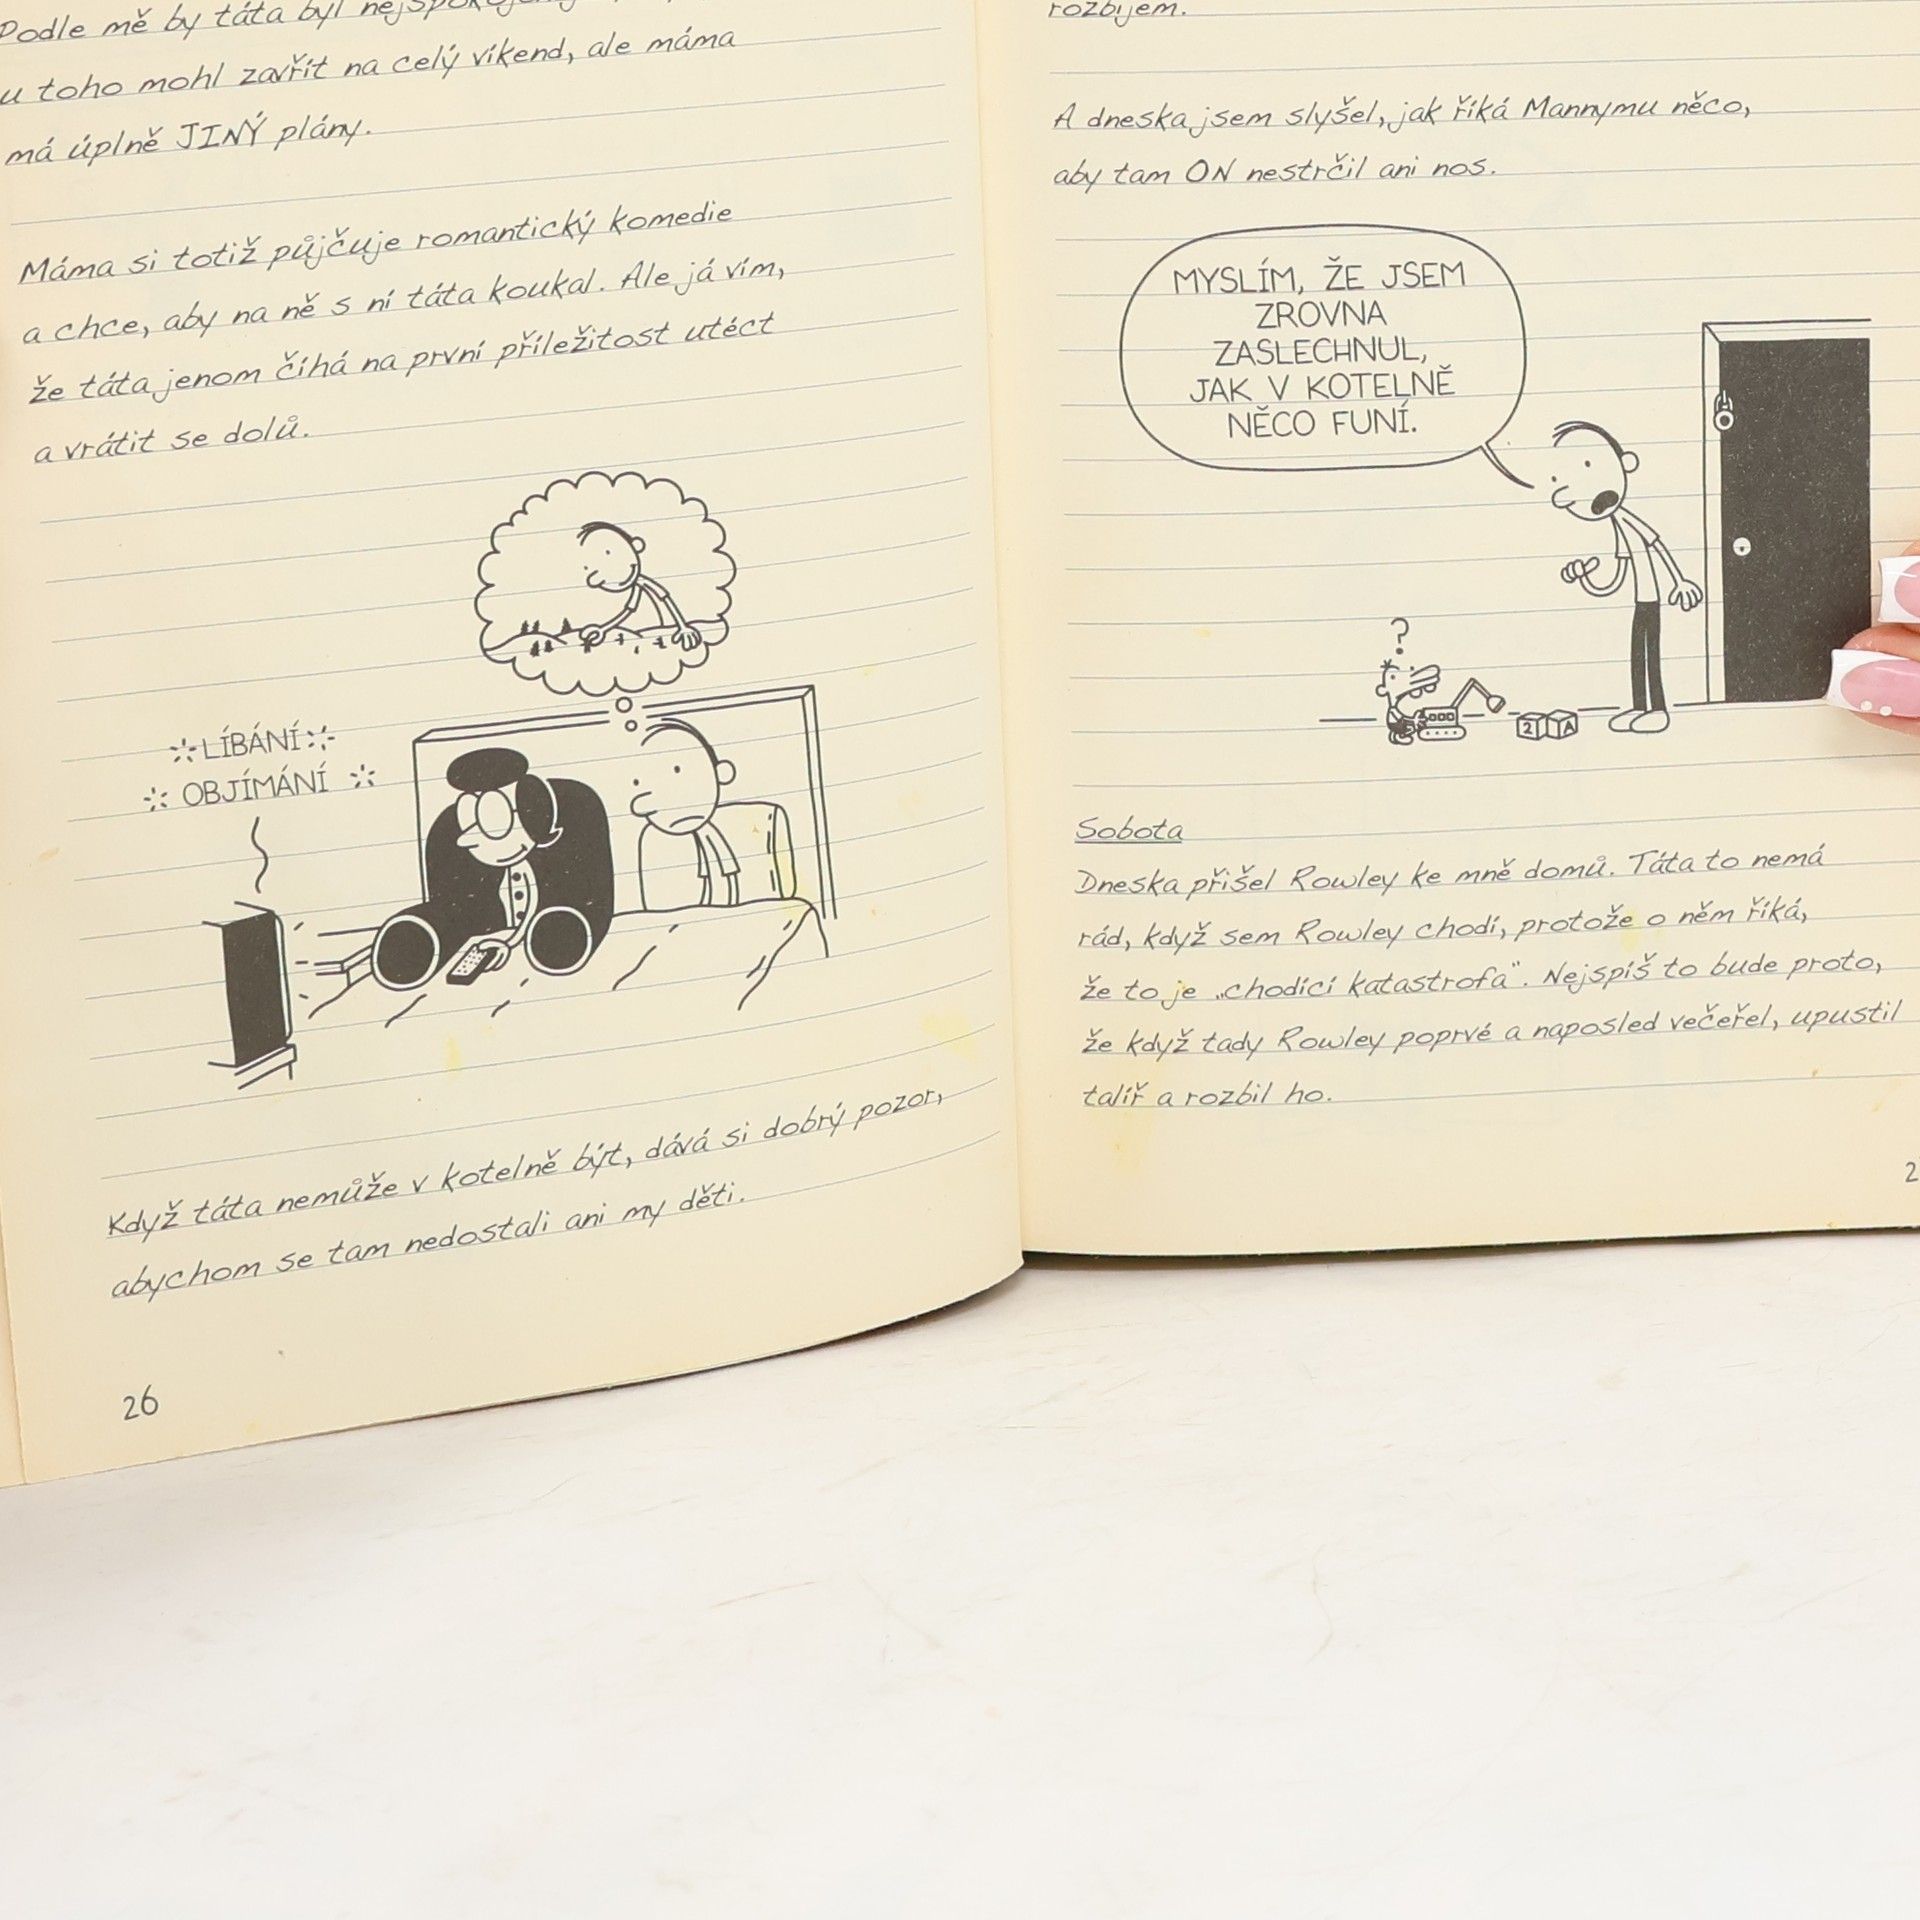 Podle mě by táta byl
u toho mohl zavřít na celý víkend, ale máma
má úplně JINÝ plány.
Máma si totiž půjčuje romantický komedie
a chce, aby na ně s ní táta koukal. Ale já vím,
že táta jenom číhá na první příležitost utéct
a vrátit se dolů.
LÍBÁNÍ
OBJÍMÁNÍ
Když táta nemůže v kotelně být, dává si dobrý pozor,
abychom se tam nedostali ani my děti.
26
rozbijem.
A dneska jsem slyšel, jak říká Mannymu něco,
aby tam ON nestrčil ani nos.
MYSLÍM, ŽE JSEM
ZROVNA
ZASLECHNUL,
JAK V KOTELNĚ
NĚCO FUNÍ.
?
2 A
Sobota
Dneska přišel Rowley ke mně domů. Táta to nemá
rád, když sem Rowley chodí, protože o něm říká,
že to je „chodící katastrofa“. Nejspíš to bude proto,
že když tady Rowley poprvé a naposled večeřel, upustil
talíř a rozbil ho.